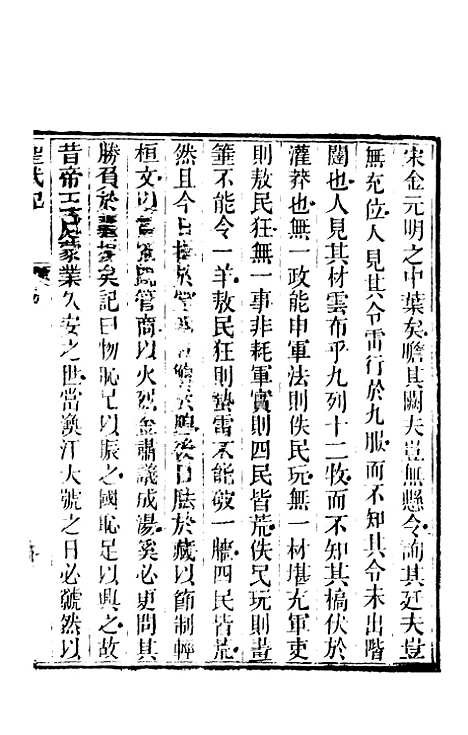 宋金元明之中葉矣瞻其闕夫豈無懸令詢其廷夫豈
無充位人見其令雷行於九服而不知其令未出階
闥也人見其材雲布乎九列十二牧而不知其槁伏於
灌莽也無一政能申軍法則佚民玩無一材堪充軍吏
則敖民狂無一事非耗軍實則四民皆荒佚民玩則畫
箠不能令一羊敖民狂則蟄雷不能破一牆四民皆荒
然且今日揖於堂明日觴於隍後日胠於藏以節制輕
桓文以富強歸管商以火烈金肅議成湯奚必更問其
勝負於疆埸矣記曰物恥足以振之國恥足以興之故
昔帝王處蒙業久安之世當渙汗大號之日必虩然以
聖武記